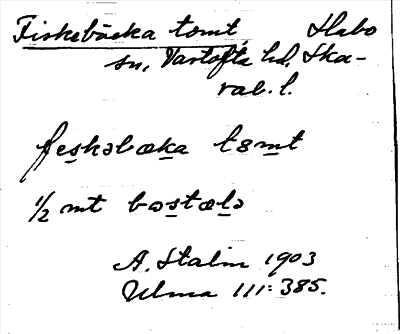 Fiskebäcka tomt Habo
sn, Vartofta hd, Ska-
rab. l.
feskəbæka tɷmt
1/2 mt bəstælə
A. Stalin 1903
Ulma 111:385.